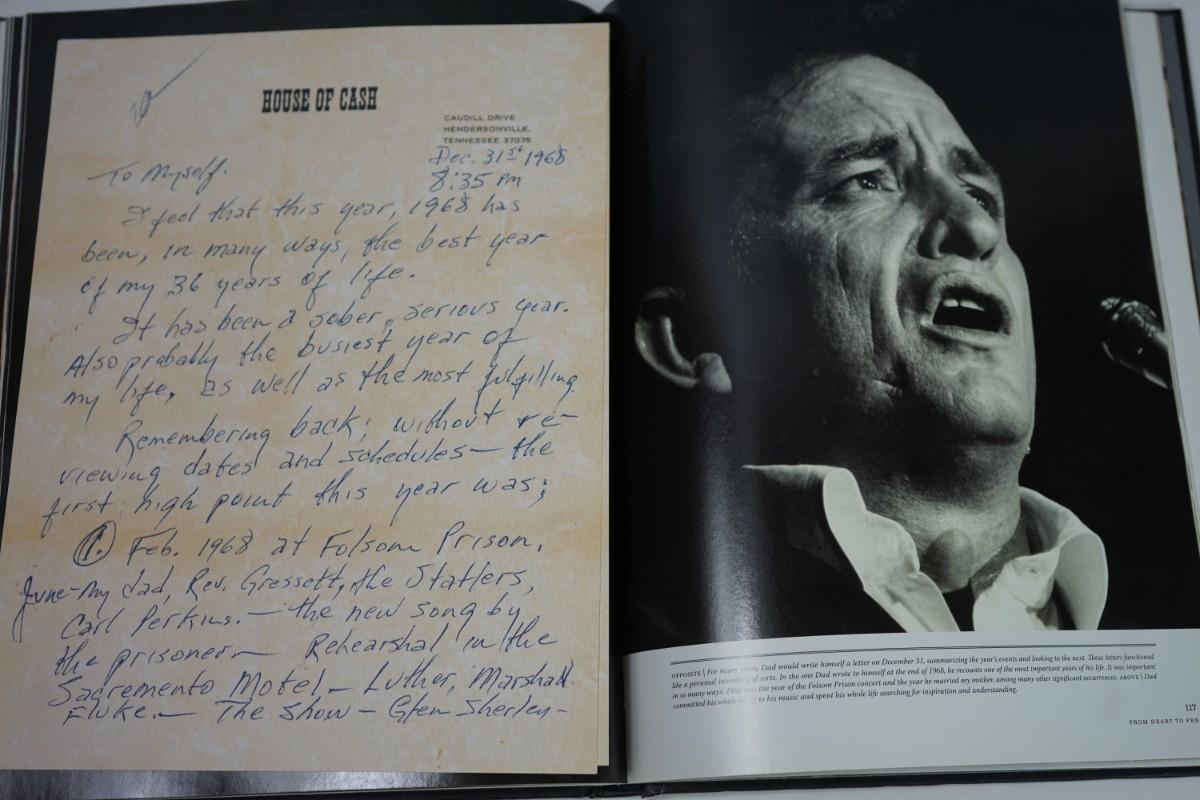 HOUSE OF CASH
CAUDILL DRIVE
HENDERSONVILLE,
TENNESSEE 37075
Dec. 31st 1968
8:35 pm
To Myself.
I feel that this year, 1968 has
been, in many ways, the best year
of my 36 years of life.
It has been a sober, serious year.
Also probably the busiest year of
my life, as well as the most fulfilling.
Remembering back; without re-
viewing dates and schedules — the
first high point this year was;
1. Feb. 1968 at Folsom Prison.
June - My dad, Rev. Gressett, the Statlers,
Carl Perkins. — the new song by
the prisoner — Rehearshal in the
Sacremento Motel — Luther, Marshall
Fluke. — The Show — Glen Sherley —
OPPOSITE | For many years, Dad would write himself a letter on December 31, summarizing the year's events and looking to the next. These letters functioned
like a personal inventory of sorts. In the one Dad wrote to himself at the end of 1968, he recounts one of the most important years of his life. It was important
in so many ways: 1968 was the year of the Folsom Prison concert and the year he married my mother, among many other significant occurrences. ABOVE | Dad
committed his whole to his music and spent his whole life searching for inspiration and understanding.
117
FROM HEART TO